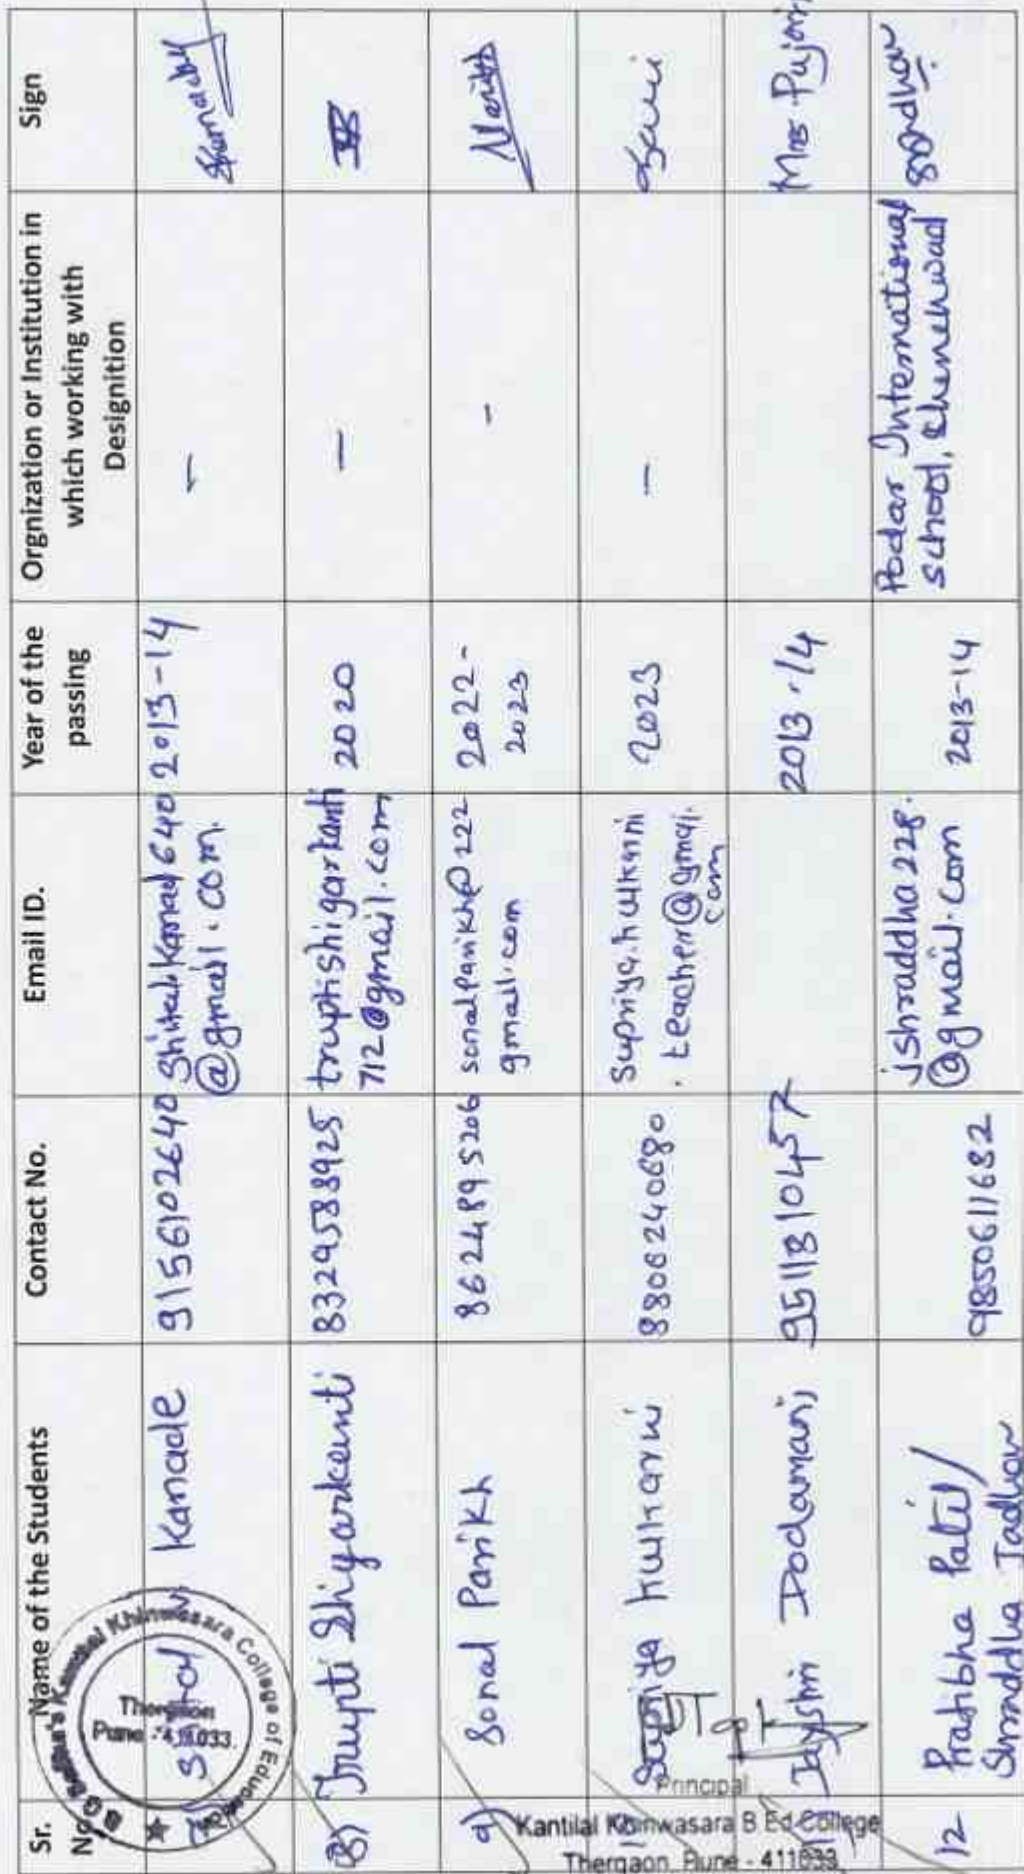 Sr. No
Name of the Students
Contact No.
Email ID.
Year of the passing
Orgnization or Institution in which working with Designition
Sign
Kanade
9156102640
@gmail.com.
2013-14
-
8)
Trupti Shiyarkanti
8329588925
truptishigarkanti
712@gmail.com
2020
-
9)
Sonal Parikh
8624895206
sonalparikh@222
gmail.com
2022-
2023
-
Supriya Kulkarni
8806240680
Supriya.kulkarni
.teacher@gmai.
com
2023
-
Jayshri Dodamani
9511810457
2013-14
Mrs. Pujari
12
Pratibha Patil/
Shraddha Jadhav
9850611682
jshraddha228.
@gmail.com
2013-14
Podar International
school, Chinchwad
Kantilal Khinwasara College of Education
Thergaon
Pune - 411033.
Principal
Kantilal Khinwasara B.Ed College
Thergaon, Pune - 411033.